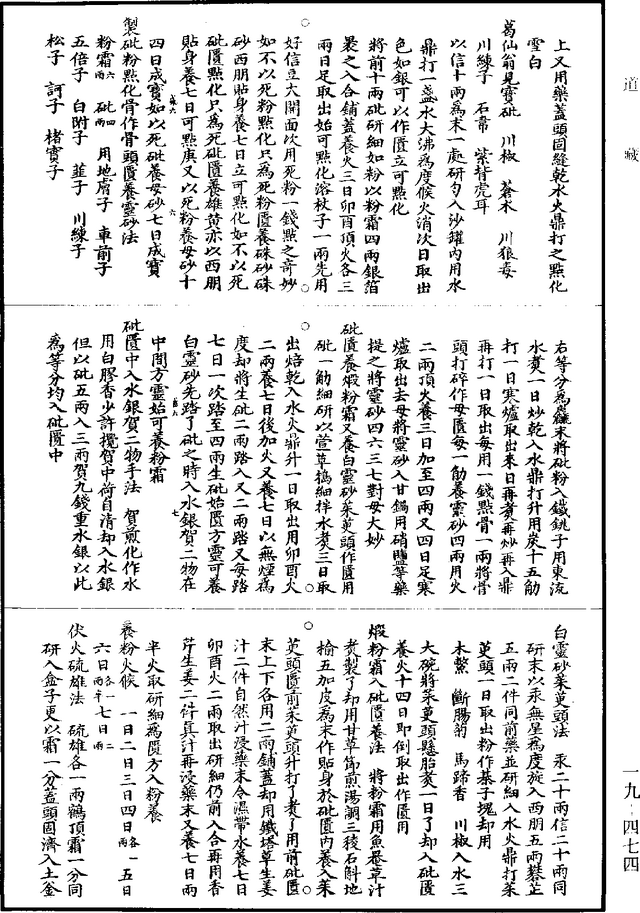 道藏
上又用藥蓋頭固縫乾水火鼎打之點化
雪白
葛仙翁見寶砒 川椒 蒼朮 川狼毒
川練子 石韋 紫背虎耳
以信十兩為末一處研勻入沙罐內用水
鼎打一盞水大沸為度候火消次日取出
色如銀可以作匱立可點化
將前十兩砒研細如粉以粉霜四兩銀箔
裹之入合鋪蓋養火三日卯酉頂火各三
兩日足取出始可點化溶杖子一兩先用
好信豆大開面次用死粉一錢點之奇妙
如不以死粉點化只為死粉匱養硃砂硃
砂西朋貼身養七日立可點化如不以死
砒匱點化只為死砒匱養雄黃亦以西朋
貼身養七日可點庚又以死粉養母砂十
四日成寶如以死砒養母砂七日成寶
製砒粉點化骨作骨頭匱養靈砂法
粉霜六兩 砒四兩 用地膚子 車前子
五倍子 白附子 韮子 川練子
松子 訶子 楮實子
右等分為麤末將砒粉入鐵銚子用東流
水煮一日炒乾入水鼎打升用炭十五觔
打一日寒爐取出來日再煮再炒再入鼎
再打一日取出每用一錢點骨一兩將骨
頭打碎作母匱每一觔養靈砂四兩用火
二兩頂火養三日加至四兩又四日足寒
爐取出去母將靈砂入甘鍋用硝鹽等藥
提之將靈砂四六三七對母大妙
砒匱養煅粉霜又養白靈砂茱萸頭作匱用
砒一觔細研以萱草搗細拌水煮三日取
出焙乾入水火鼎升一日取出用卯酉火
二兩養七日後加火又養七日以無煙為
度却將生砒二兩踏入又二兩踏又每踏
七日一次踏至四兩生砒始匱方靈可養
白靈砂先踏了砒之時入水銀賀二物在
中間方靈始可養粉霜
砒匱中入水銀賀二物手法 賀煎化作水
用白膠香少許攪賀中荷自清却入水銀
但以砒五兩入三兩賀九錢重水銀以此
為等分均入砒匱中
白靈砂茱萸頭法 汞二十兩信二十兩同
研末以汞無星為度旋入西朋五兩礬芷
五兩二件同前藥並研細入水火鼎打茱
萸頭一日取出粉作棊子塊却用
木鱉 斷腸菊 馬蹄香 川椒入水三
大碗將茱萸頭懸胎煮一日了却入砒匱
養火十四日即倒取出作匱用
煅粉霜入砒匱養法 將粉霜用魚罾草汁
煮製了却用甘草節煎湯調三稜石斛地
榆五加皮為末作貼身於砒匱內養入茱
萸頭匱前汞茱萸升打了煮了用前砒匱
末上下各用二兩鋪蓋却用鐵塔草生姜
汁二件自然汁浸藥末令濕帶水養七日
卯酉火二兩取出研細仍前入合再用香
芹生姜二件真汁再浸藥末又養七日兩
半火取研細為匱方入粉養
養粉火候 一日二日三日四日各一兩 五日
六日各一兩半 七日二兩
伏火硫雄法 硫雄各一兩鶴頂霜一分同
研入盒子更以霜一分蓋頭固濟入土釜
一九‧四七四